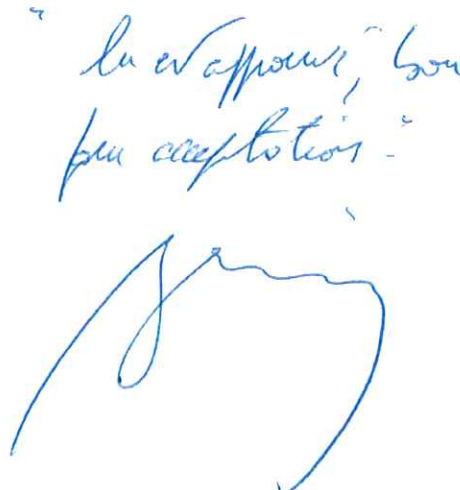 "Lu et approuvé, bon
pour acceptation."